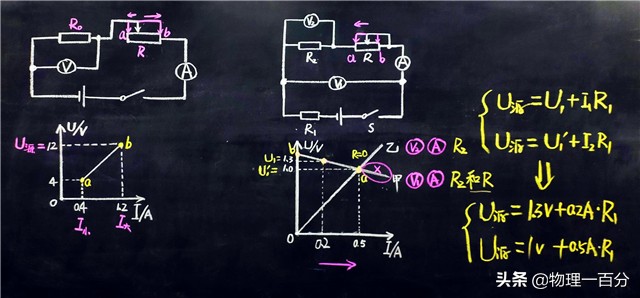 R₀
a
b
R
V
A
U/V
U源=12
b
4
a
0
0.4
1.2
I/A
I小
I大
V₂
R₂
a
b
R
A
V₁
R₁
S
U/V
U₁=1.3
U₁'=1.0
R=0
a
乙
甲
0
0.2
0.5
I/A
V₂ A R₂
V₁ A R₂和R
U源=U₁+I₁R₁
U源=U₁'+I₂R₁
U源=1.3V+0.2A·R₁
U源=1V+0.5A·R₁
头条 @物理一百分